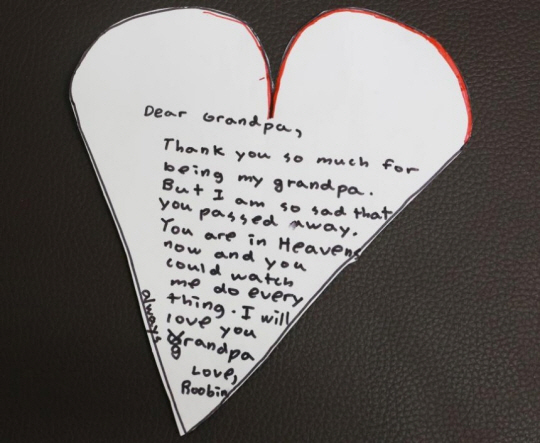 Dear Grandpa,
Thank you so much for
being my grandpa.
But I am so sad that
you passed away.
You are in Heavens
now and you
could watch
me do every
thing. I will
always
love you
grandpa
Love,
Roobin